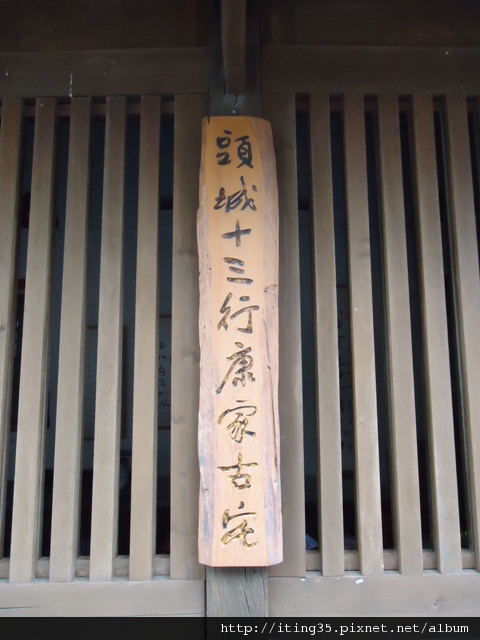 頭城十三行康家古宅
http://iting35.pixnet.net/album